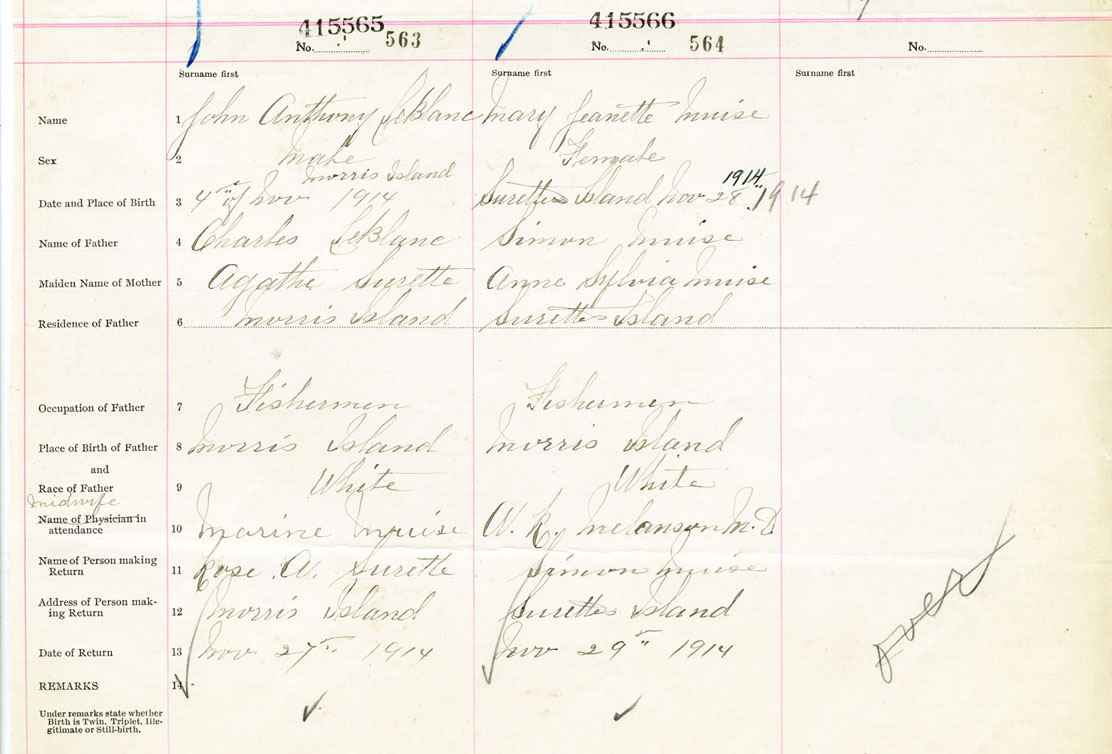 415565
No. 563
415566
No. 564
No.
Surname first
Surname first
Surname first
Name 1 John Anthony LeBlanc Mary Jeanette Muise
Sex 2 Male Female
Morris Island 1914
Date and Place of Birth 3 4th of Nov 1914 Surettes Island Nov 28th 1914
Name of Father 4 Charles LeBlanc Simon Muise
Maiden Name of Mother 5 Agathe Surette Anne Sylvia Muise
Residence of Father 6 Morris Island Surettes Island
Occupation of Father 7 Fishermen Fishermen
Place of Birth of Father 8 Morris Island Morris Island
and
Race of Father 9 White White
Midwife
Name of Physician in
attendance 10 Marine Muise A. R. Melanson M.D
Name of Person making
Return 11 Rose A. Surette Simon Muise
Address of Person mak-
ing Return 12 Morris Island Surettes Island
Date of Return 13 Nov 27th 1914 Nov 29th 1914
REMARKS 14
Under remarks state whether
Birth is Twin, Triplet, Ille-
gitimate or Still-birth.
over